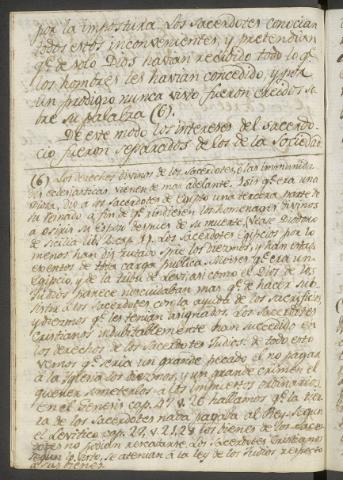 por la impostura. Los Sacerdotes conocian
todos estos inconvenientes, y pretendian
qe. de solo Dios havian recibido todo lo qe.
los hombres les havian concedido, y por
un prodigio nunca visto fueron creidos so-
bre su palabra (6).
De este modo los intereses del sacerdo-
cio fueron separados de los de la Sociedad
(6) Los derechos divinos de los Sacerdotes, o las inmunida-
des eclesiasticas vienen de mas adelante. Isis qe. era una
Diosa, dio a los Sacerdotes de Egipto una tercera parte de
su Reinado a fin de qe. rindiesen los homenages divinos
a Osiris su esposo despues de su muerte. (Vease Diodoro
de Sicilia lib. 1. cap. 1). Los Sacerdotes Egipcios por lo
menos han disfrutado spre. los diezmos, y han estado
exentos de toda carga publica. Moyses qe. era un
Egipcio, y de la tribu de Levi, asi como el Dios de los
Judios parece no cuidaban mas qe. de hacer sub-
sistir a los Sacerdotes con la ayuda de los sacrificios
y diezmos qe. les tenian asignados. Los Sacerdotes
cristianos indubitablemente han succedido en
los derechos de los Sacerdotes Judios: de todo esto
vemos qe. seria un grande pecado el no pagar
a la Iglesia los diezmos, y un grande crimen el
querer someterlos a los impuestos ordinarios.
En el Genesis cap. 47 v. 26 hallamos qe. la tier-
ra de los Sacerdotes nada pagaba al Rey. Segun
el Levitico cap. 27 v. 21, 28 los bienes de los Sacer-
dotes no podian rescatarse. Los Sacerdotes Cristianos
segun lo vemos, se atenian a la ley de los Judios respecto
a sus bienes.